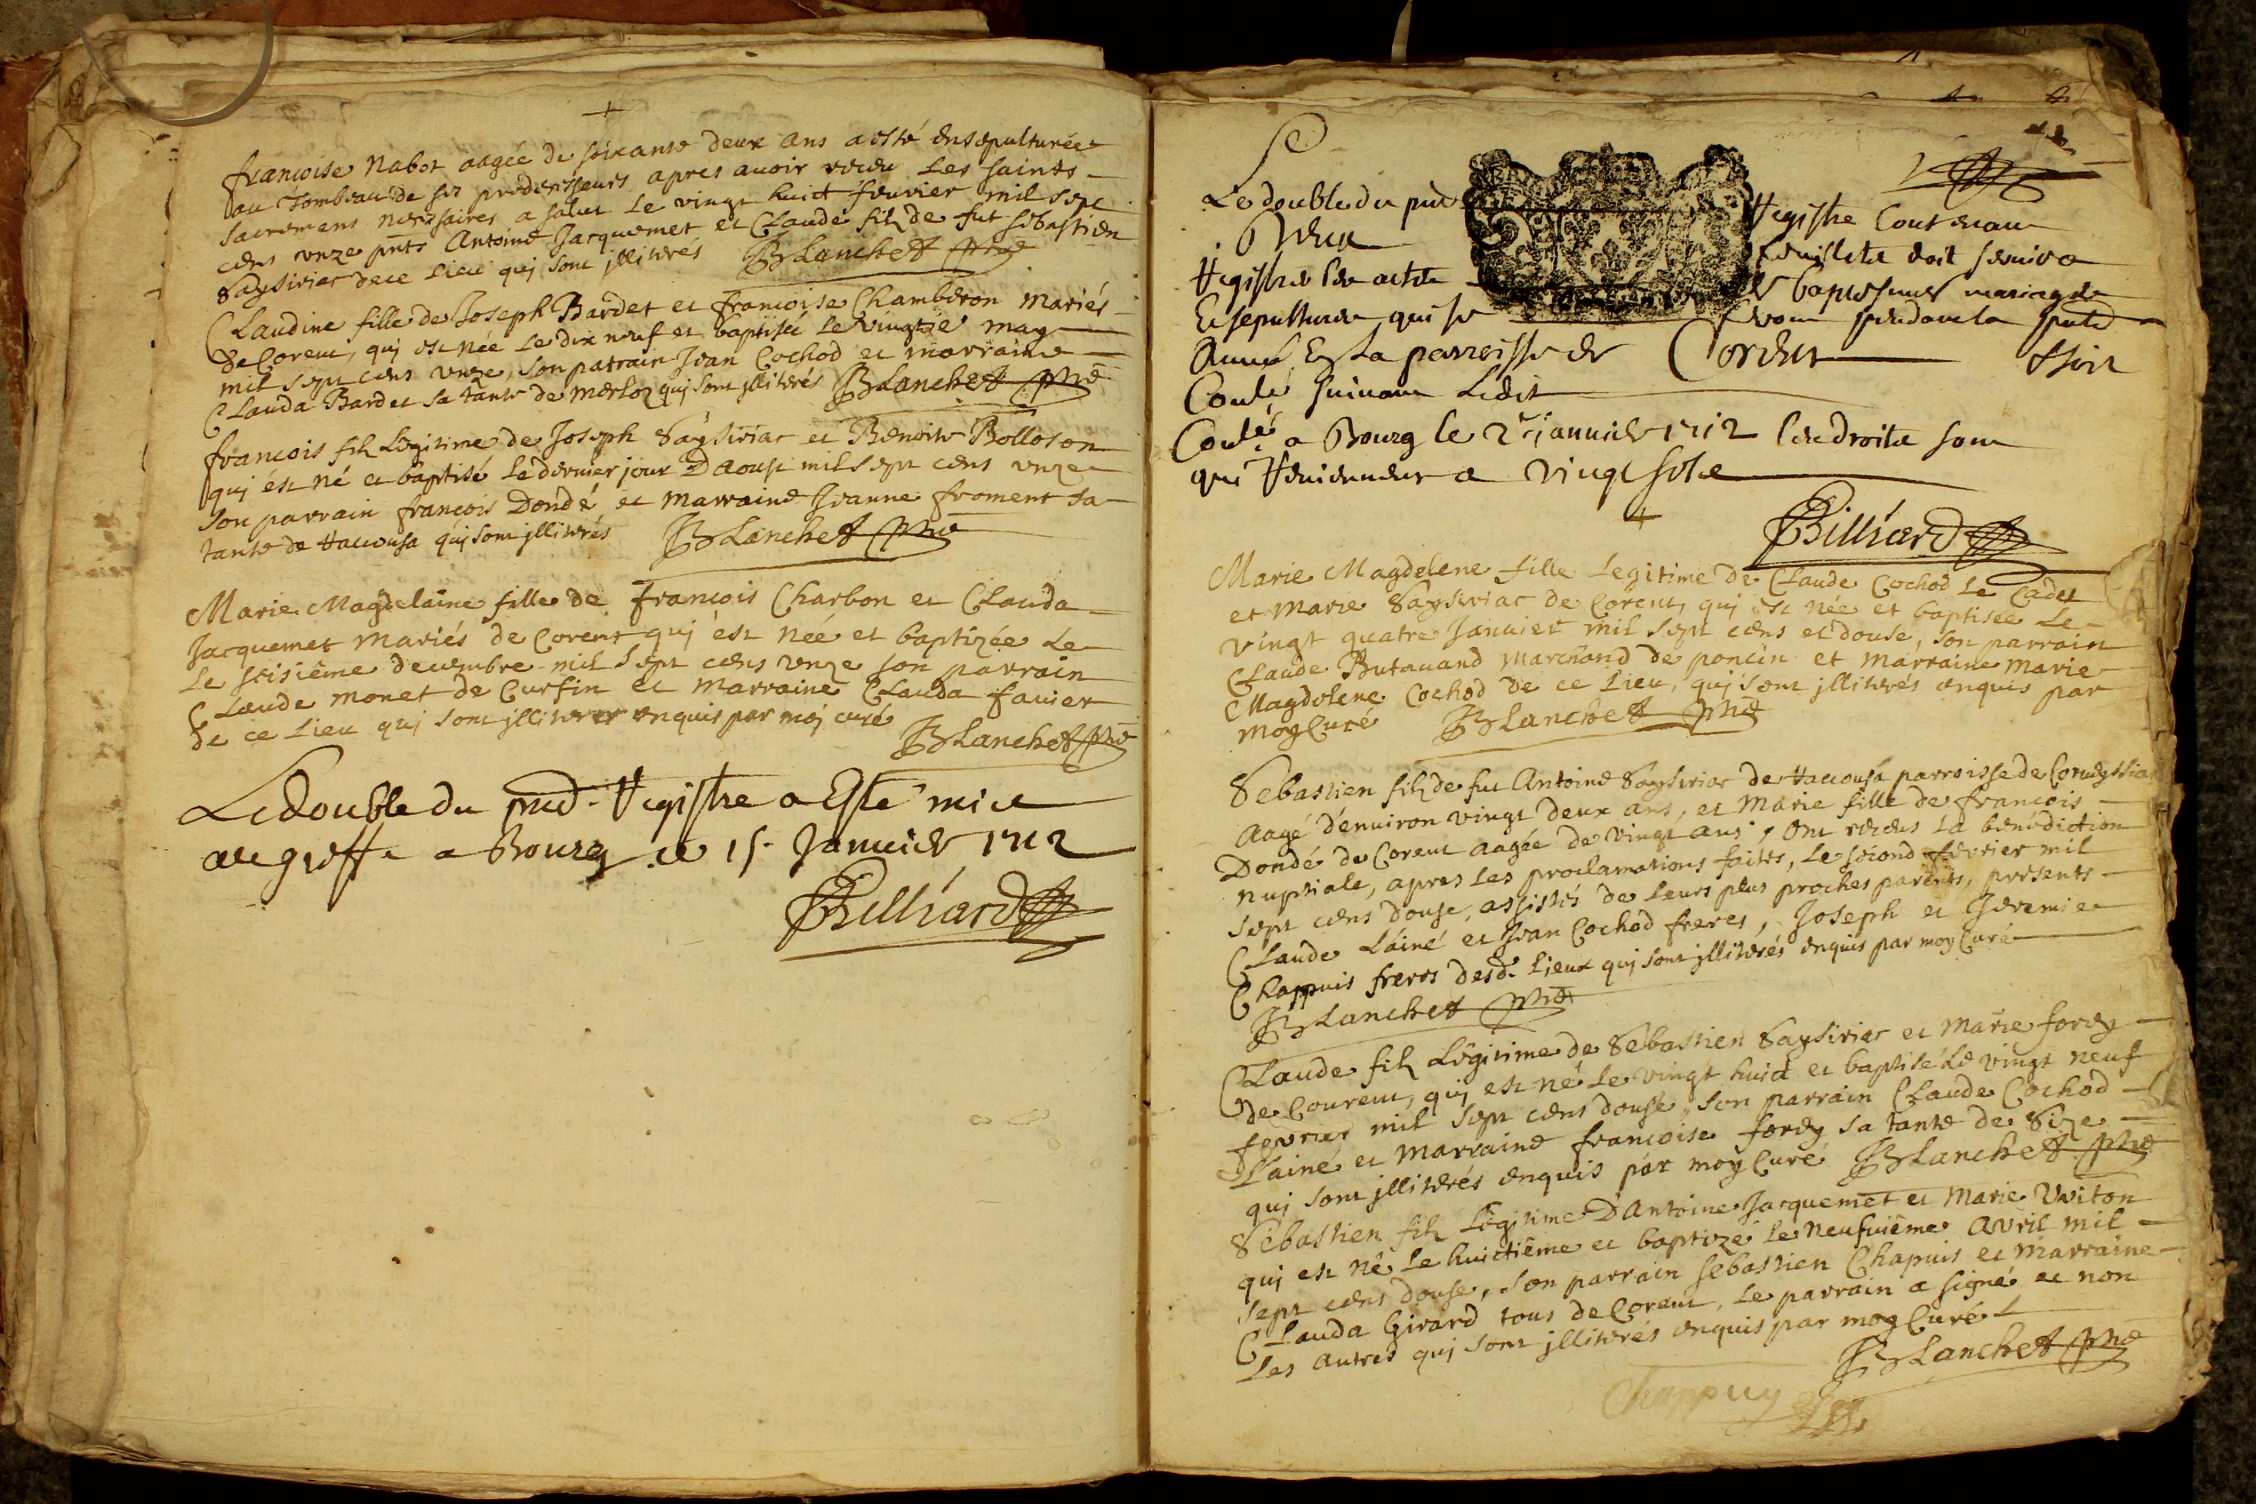 francoise Nabot aagée de soixante deux ans a esté ensepulturée
au Tombeau de ses predecesseurs apres auoir receu Les saints
sacremens necessaires a salut Le vingt huict feurier mil sept
cens unze pnts Antoine Jacquemet et Claude filz de fut sebastien
Saysiriac de ce Lieu qui sont jlliterés BLanchet ptre
Claudine fille de Joseph Bardet et francoise Chamberon Mariés
de Corent, qui est née Le dix neuf et baptisée Le vingtie may
mil sept cens unze, son patrain Jean Cochod et marraine
Clauda Bardet sa tante de merloz qui sont jlliterés BLanchet ptre
francois filz Legitime de Joseph Saysiriac et Benoite Bolloson
qui est né et baptisé Le dernier jour Daoust mil sept cens unze
son parrain francois Dondé et marraine Jeanne froment sa
tante de Racousa qui sont jlliterés BLanchet ptre
Marie Magdelaine fille de François Charbon et Clauda
Jacquemet mariés de Corent qui est née et baptizée Le
Le seisième decembre mil sept cens unze son parrain
Claude monet de Curfin et marraine Clauda fauier
de ce Lieu qui sont jlliterer enquis par moj curé
BLanchet ptre
Le double du pnd. Registre a Esté mis
au greffe a Bourg ce 15. Januier 1712
Billiard
Le double du pnt Registre Contenant
feuillets doit seruir a
Registrer les actes de baptesmes mariages
Et sepultures qui se feront pendant la pnte
Année En la parroisse de Corent
Coulé suiuant Ledit
Coulé a Bourg le 2e januier 1712 les droits sont
qui Reuiennent a vingt sols
Billiard
Marie Magdelene fille Legitime de Claude Cochod Le Cadet
et Marie Saysiriac de Corent, qui est née et baptisée Le
vingt quatre Januier mil sept cens et douse, son parrain
Claude Butauand marchand de poncin et marraine marie
Magdelene Cochod de ce Lieu, qui sont jlliterés enquis par
moy Curé BLanchet ptre
Sebastien filz de fut Antoine Saysiriac de Racousa parroisse de
Aagé d'enuiron vingt deux ans, et Marie fille de francois
Dondé de Corent aagée de vingt ans, ont receus La benediction
nuptiale, apres Les proclamations faites, Le second féurier mil
sept cens douse, assistés de Leurs plus proches parents, presents
Claude L'ainé et Jean Cochod freres, Joseph et Jeremie
Chappuis freres desd. Lieux qui sont jlliterés enquis par moy Curé
BLanchet ptre
Claude filz Légitime de Sebastien Saysiriac et Marie forey
de Courent, qui est né Le vingt huict et baptisé Le vingt neuf
feurier mil sept cens douse, son parrain Claude Cochod
L'ainé et marraine francoise forey sa tante de Size
qui sont jlliterés enquis par moy Curé BLanchet ptre
Sebastien filz Légitime D'Antoine Jacquemet et Marie Vuiton
qui est né Le huictième et baptizé Le neufuième Avril mil
sept cens douse, son parrain sebastien Chapuis et marraine
Clauda Girard tous de Corent, Le parrain a signé et non
Les autres qui sont jlliterés enquis par moy Curé
BLanchet ptre
Chappuy